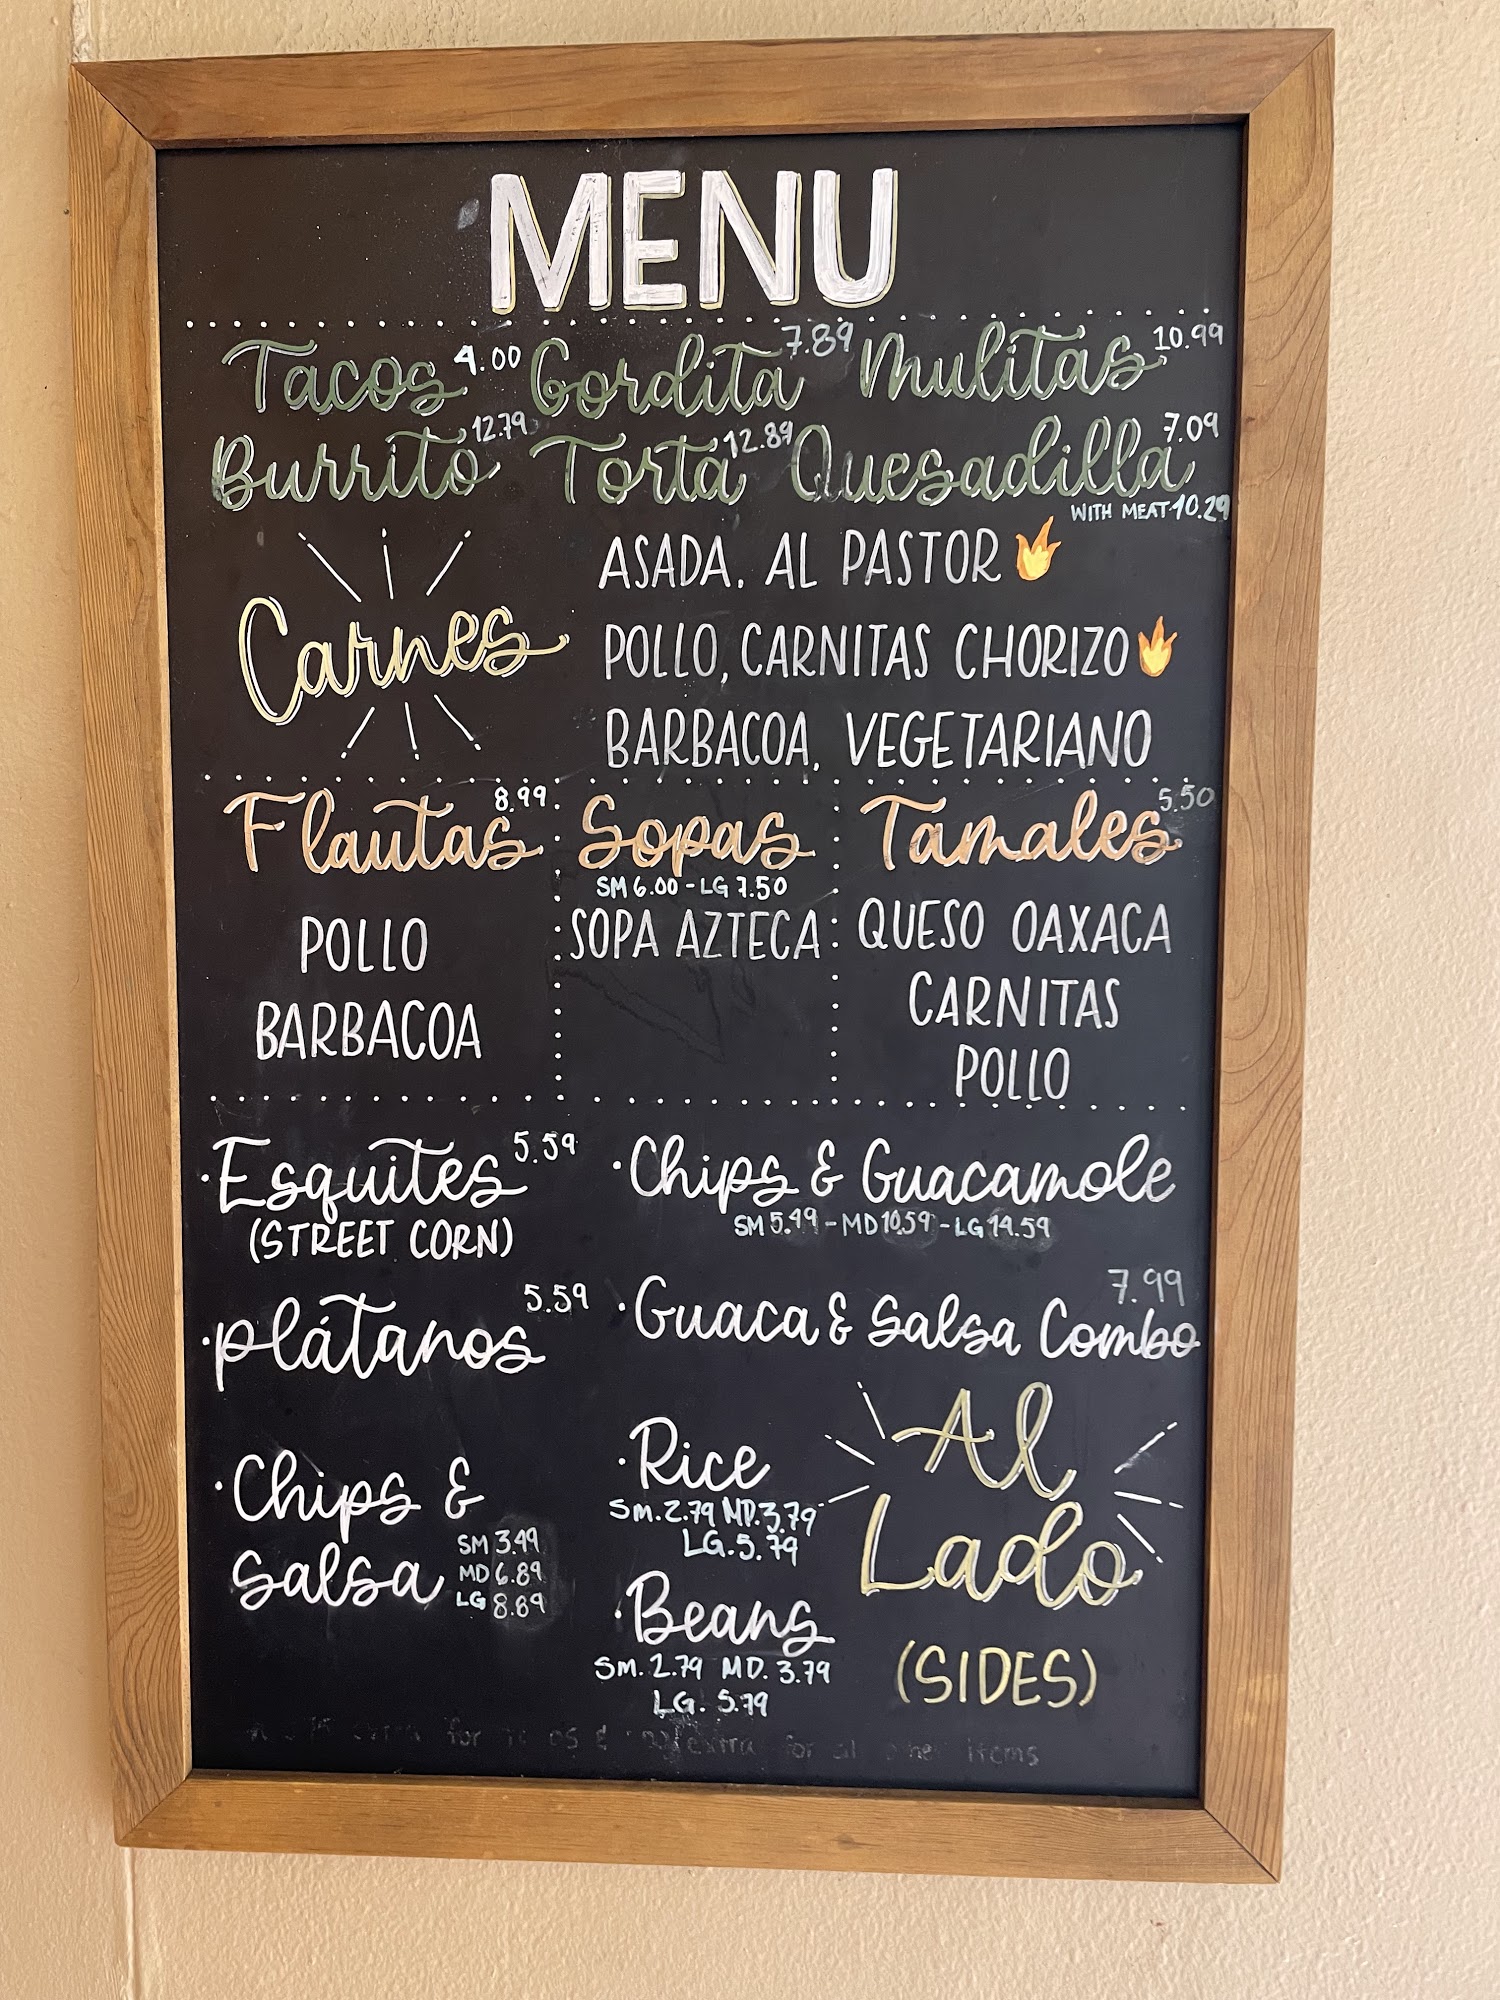 MENU
Tacos 4.00 Gordita 7.89 Mulitas 10.99
Burrito 12.79 Torta 12.89 Quesadilla 7.09
WITH MEAT 10.29
Carnes
ASADA, AL PASTOR
POLLO, CARNITAS CHORIZO
BARBACOA, VEGETARIANO
Flautas 8.99
POLLO
BARBACOA
Sopas
SM 6.00 - LG 7.50
SOPA AZTECA
Tamales 5.50
QUESO OAXACA
CARNITAS
POLLO
·Esquites 5.59
(STREET CORN)
·Chips & Guacamole
SM 5.49 - MD 10.59 - LG 14.59
·plátanos 5.59
·Guaca & Salsa Combo 7.99
·Chips &
Salsa
SM 3.49
MD 6.89
LG 8.89
·Rice
SM. 2.79 MD. 3.79
LG. 5.79
·Beans
SM. 2.79 MD. 3.79
LG. 5.79
Al
Lado
(SIDES)
for extra for items